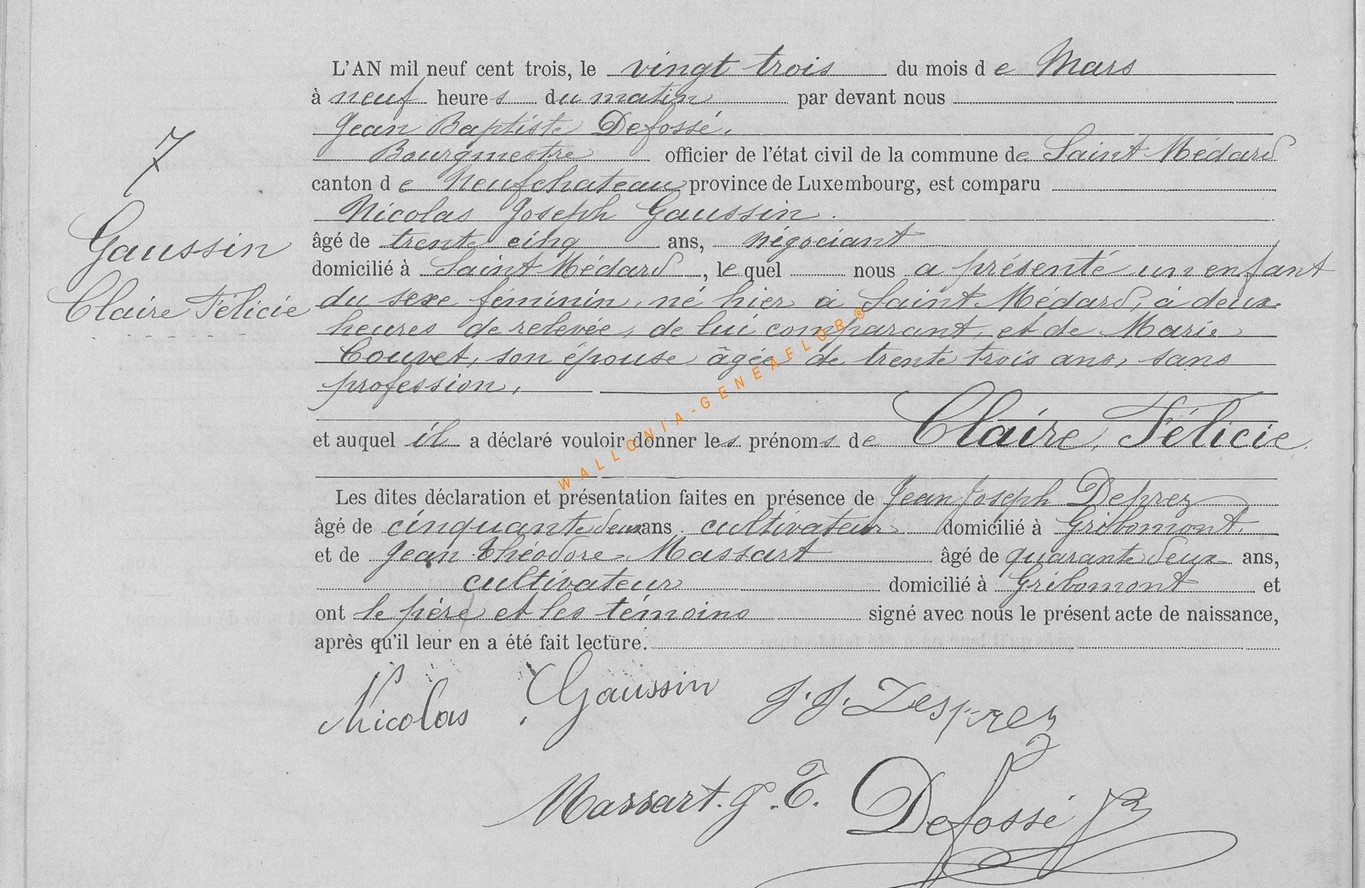 L'AN mil neuf cent trois, le vingt trois du mois de Mars
à neuf heures du matin par devant nous
Jean Baptiste Defossé.
Bourgmestre officier de l'état civil de la commune de Saint Médard
canton de Neufchateau province de Luxembourg, est comparu
Nicolas Joseph Gaussin.
âgé de trente cinq ans, négociant
domicilié à Saint Médard, lequel nous a présenté un enfant
du sexe féminin, né hier à Saint Médard, à deux
heures de relevée, de lui comparant, et de Marie
Couvet, son épouse âgée de trente trois ans, sans
profession,
et auquel il a déclaré vouloir donner les prénoms de Claire, Félicie
Les dites déclaration et présentation faites en présence de Jean Joseph Deprez
âgé de cinquante deux ans, cultivateur domicilié à Gribomont
et de Jean Théodore Massart âgé de quarante deux ans,
cultivateur domicilié à Gribomont et
ont le père et les témoins signé avec nous le présent acte de naissance,
après qu'il leur en a été fait lecture.
7
Gaussin
Claire Félicie
Nicolas Gaussin J. J. Desprez
Massart. J. T. Defossé JB
WALLONIA-GENEAFLOR©